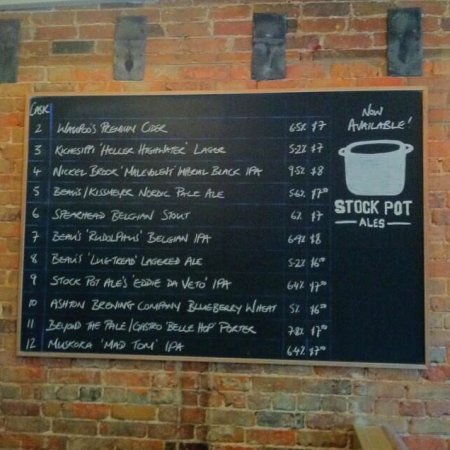 CASK
2 WAUPOO'S PREMIUM CIDER 6.5% $7
3 KICHESIPPI 'HELLER HIGHWATER' LAGER 5.2% $7
4 NICKEL BROOK 'MALEVOLENT' IMPERIAL BLACK IPA 9.5% $8
5 BEAU'S/KISSMEYER NORDIC PALE ALE 5.6% $7
6 SPEARHEAD BELGIAN STOUT 6% $7
7 BEAU'S BELGIAN IPA 6.9% $8
8 BEAU'S 'LUGTREAD' LAGERED ALE 5.2% $6
9 STOCK POT ALE'S 'EDDIE DA VETO' IPA 6.4% $7
10 ASHTON BREWING COMPANY BLUEBERRY WHEAT 5% $6
11 BEYOND THE PALE/CHSTRO BELLE HOP PORTER 7.8% $7
12 MUSKOKA 'MAD TOM' IPA 6.4% $7
NOW
AVAILABLE!
STOCK POT
ALES